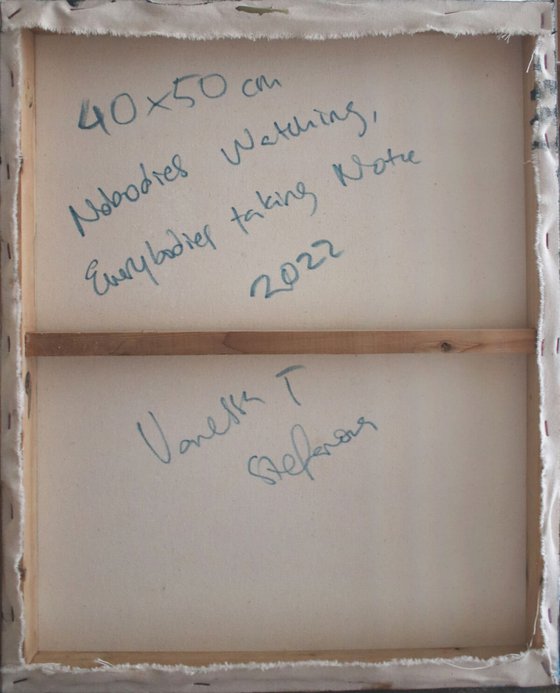 40x50 cm
Nobodies Watching,
Everybodies taking Note
2022
Vanessa T
Stefanova